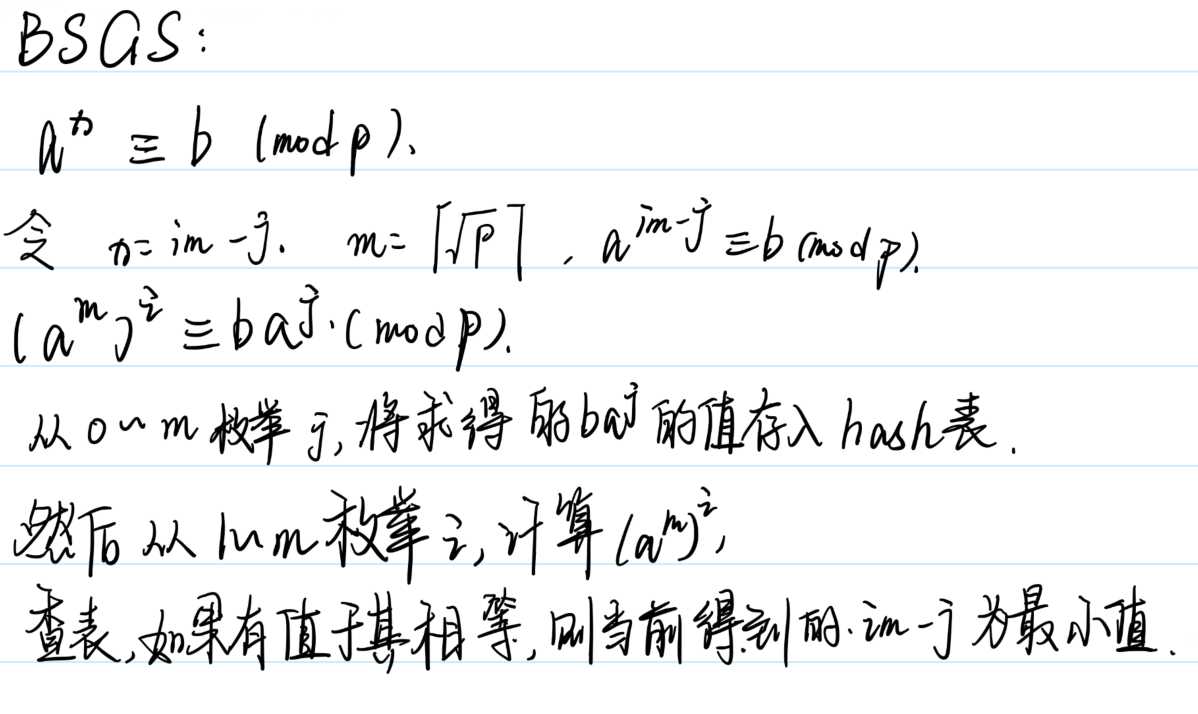 BSGS:
aⁿ ≡ b (mod p).
令 n = im - j. m = ⌈√p⌉, a^{im-j} ≡ b (mod p).
(a^m)^i ≡ ba^j. (mod p).
从 0~m 枚举 j, 将求得的 ba^j 的值存入 hash表.
然后从 1~m 枚举 i, 计算 (a^m)^i,
查表, 如果有值于其相等, 则当前得到的 im-j 为最小值.